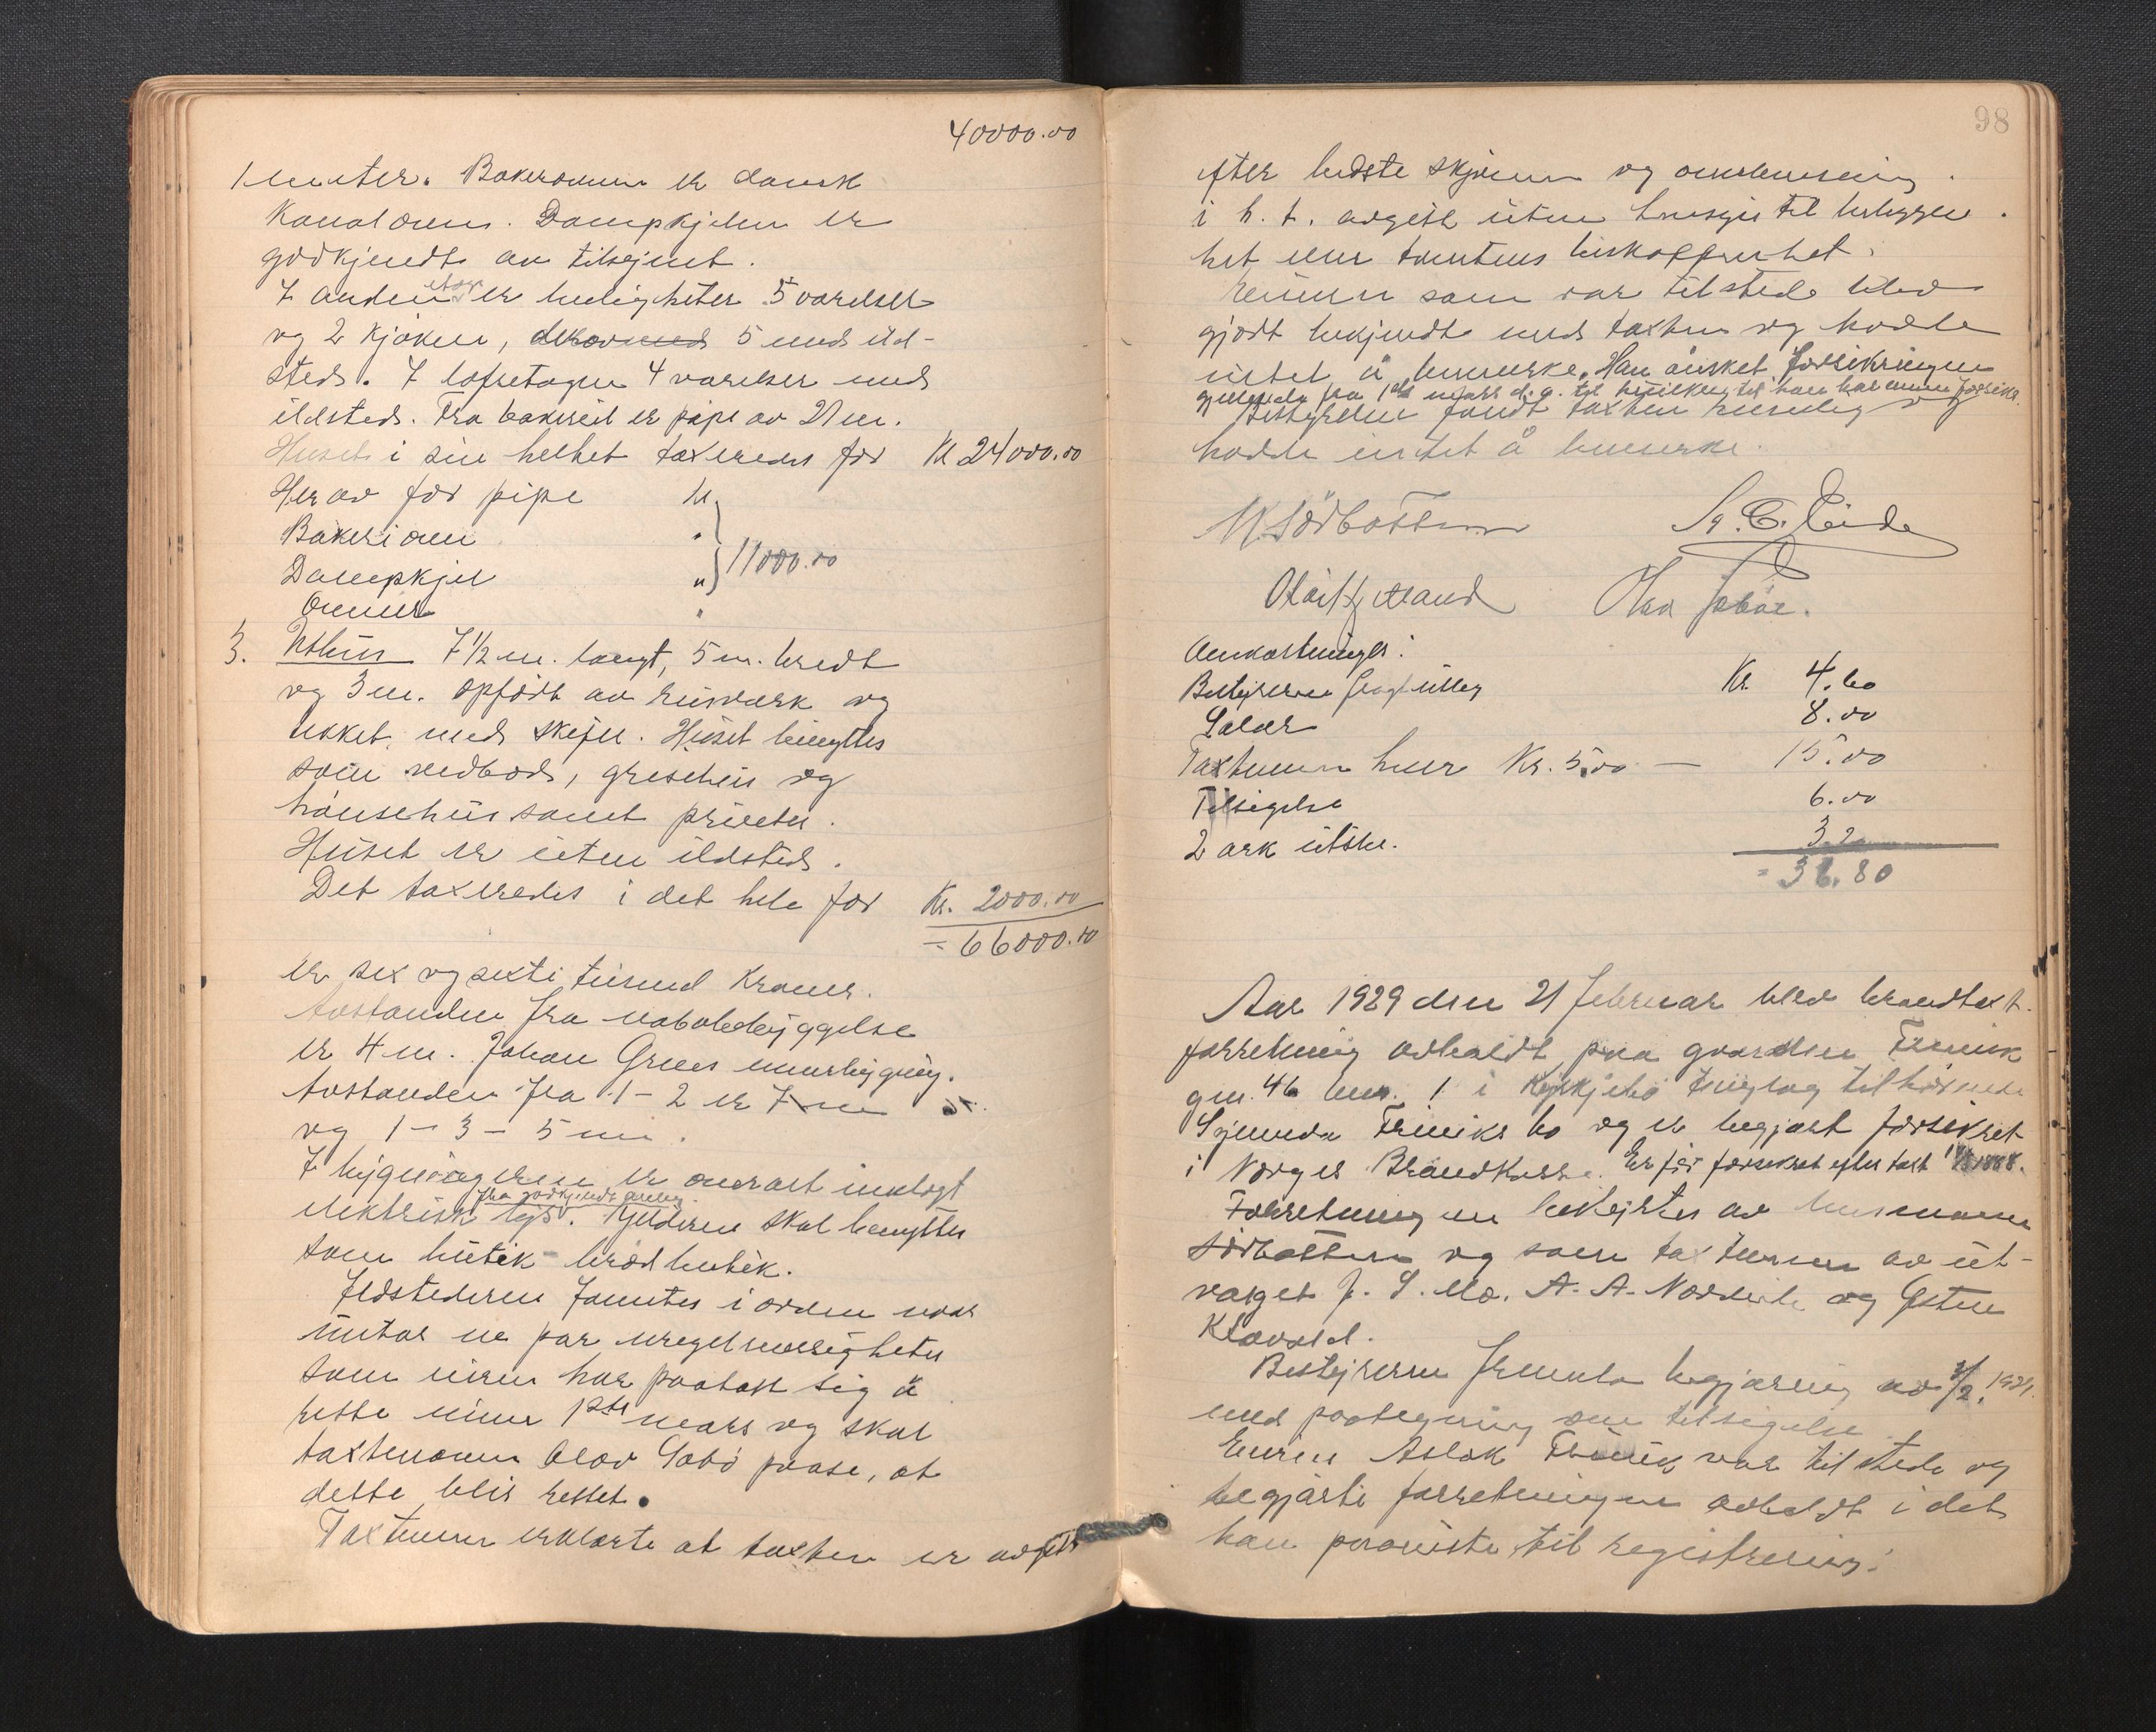 40000.00
1 meuter. Bakerovnen er dansk
Kanalovn. Dampkjelen er
godkjendt av tilsynet.
I anden etage er leiligheter 5 værelser
og 2 kjøken, derav med 5 med ild-
sted. I loftetagen 4 værelser med
ildsted. Fra bakeriet er pipe av 21 m.
Huset i sin helhet taxeredes for Kr 24000.00
Herav for pipe kr
Bakeriovn "
Dampkjel " 11000.00
Ovner "
3. Uthus 7 1/2 m. langt, 5 m. bredt
og 3 m. opført av reisverk og
tekket med skifer. Huset benyttes
som vedbod, grisehus og
hønsehus samt priveter.
Huset er uten ildsted.
Det taxeredes i det hele for Kr. 2000.00
= 66000.00
er sex og sexti tusend Kroner.
Avstanden fra nabobebyggelse
er 4 m. Johan Grues murbygning.
Avstanden fra 1 - 2 er 7 m
og 1 - 3 - 5 m.
I bygningerne er overalt innlagt
fra godkjendt anlæg
elektrisk lys. Kjelderen skal benyttes
som butik - brødbutik.
Ildstederne fanntes i orden naar
untas ne par uregelmæssigheter
som eieren har paatat sig å
rette innen 1ste mars og skal
taxtmann Olav Sæbø paase, at
dette blir rettet.
Taxtmenn erklærte at taxten er avgitt
98
efter bedste skjønn og overbevisning.
i h. t. avgitt uten hensyn til beliggen
het eller tomtens beskaffenhet.
Eieren som var tilstede blev
gjort bekjendt med taxten og hadde
intet å bemerke. Han ønsket forsikringen
gjellende fra 1ste mars d. a. til hvilken tid han har annen forsikr.
Bestyreren fandt taxten rimelig og
hadde intet å bemerke.
M Sørbotten
Omkostninger:
Bestyreren Kr. 4.60
Salær 8.00
Taxtmenn hver Kr. 5.00 — 15.00
Tilsigelse 6.00
2 ark utskr. 3.20
= 36.80
Aar 1929 den 21 februar blev brandtaxt.
forretning avholdt paa gaarden Frimik
gnr. 46 bnr. 1 i Kyrkjebø tinglag tilhørende
bo og er begjært forsikret
i Norges Brandkasse. Er før forsikret efter taxt 1888.
Forretningen bestyrtes av lensmann
Sørbotten og som taxtmenn av ut-
valget J. S. Mo. A. A. Nordeide og Østen
Klævold.
Bestyreren fremla begjæring av /2. 1929.
med paategning om tilsigelse
Eieren Aslak Frimik var tilstede og
begjærte forretningen avholdt i det
han paaviste til registrering: